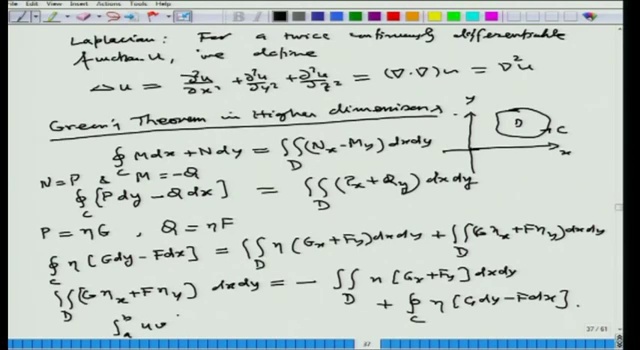 View Insert Actions Tools Help
Laplacian: For a twice continuously differentiable
function u, we define
Δu = ∂²u/∂x² + ∂²u/∂y² + ∂²u/∂z² = (∇·∇)u = ∇²u
Green's Theorem in Higher dimensions
y
D
C
x
∮_C Mdx + Ndy = ∬_D (N_x - M_y) dxdy
N = P & M = -Q
∮_C [Pdy - Qdx] = ∬_D (P_x + Q_y) dxdy
P = ηG , Q = ηF
∮_C η [Gdy - Fdx] = ∬_D η (G_x + F_y) dxdy + ∬_D (Gη_x + Fη_y) dxdy
∬_D (Gη_x + Fη_y) dxdy = - ∬_D η [G_x + F_y] dxdy
+ ∮_C η [Gdy - Fdx].
∫_a^b uv
37 / 61
37